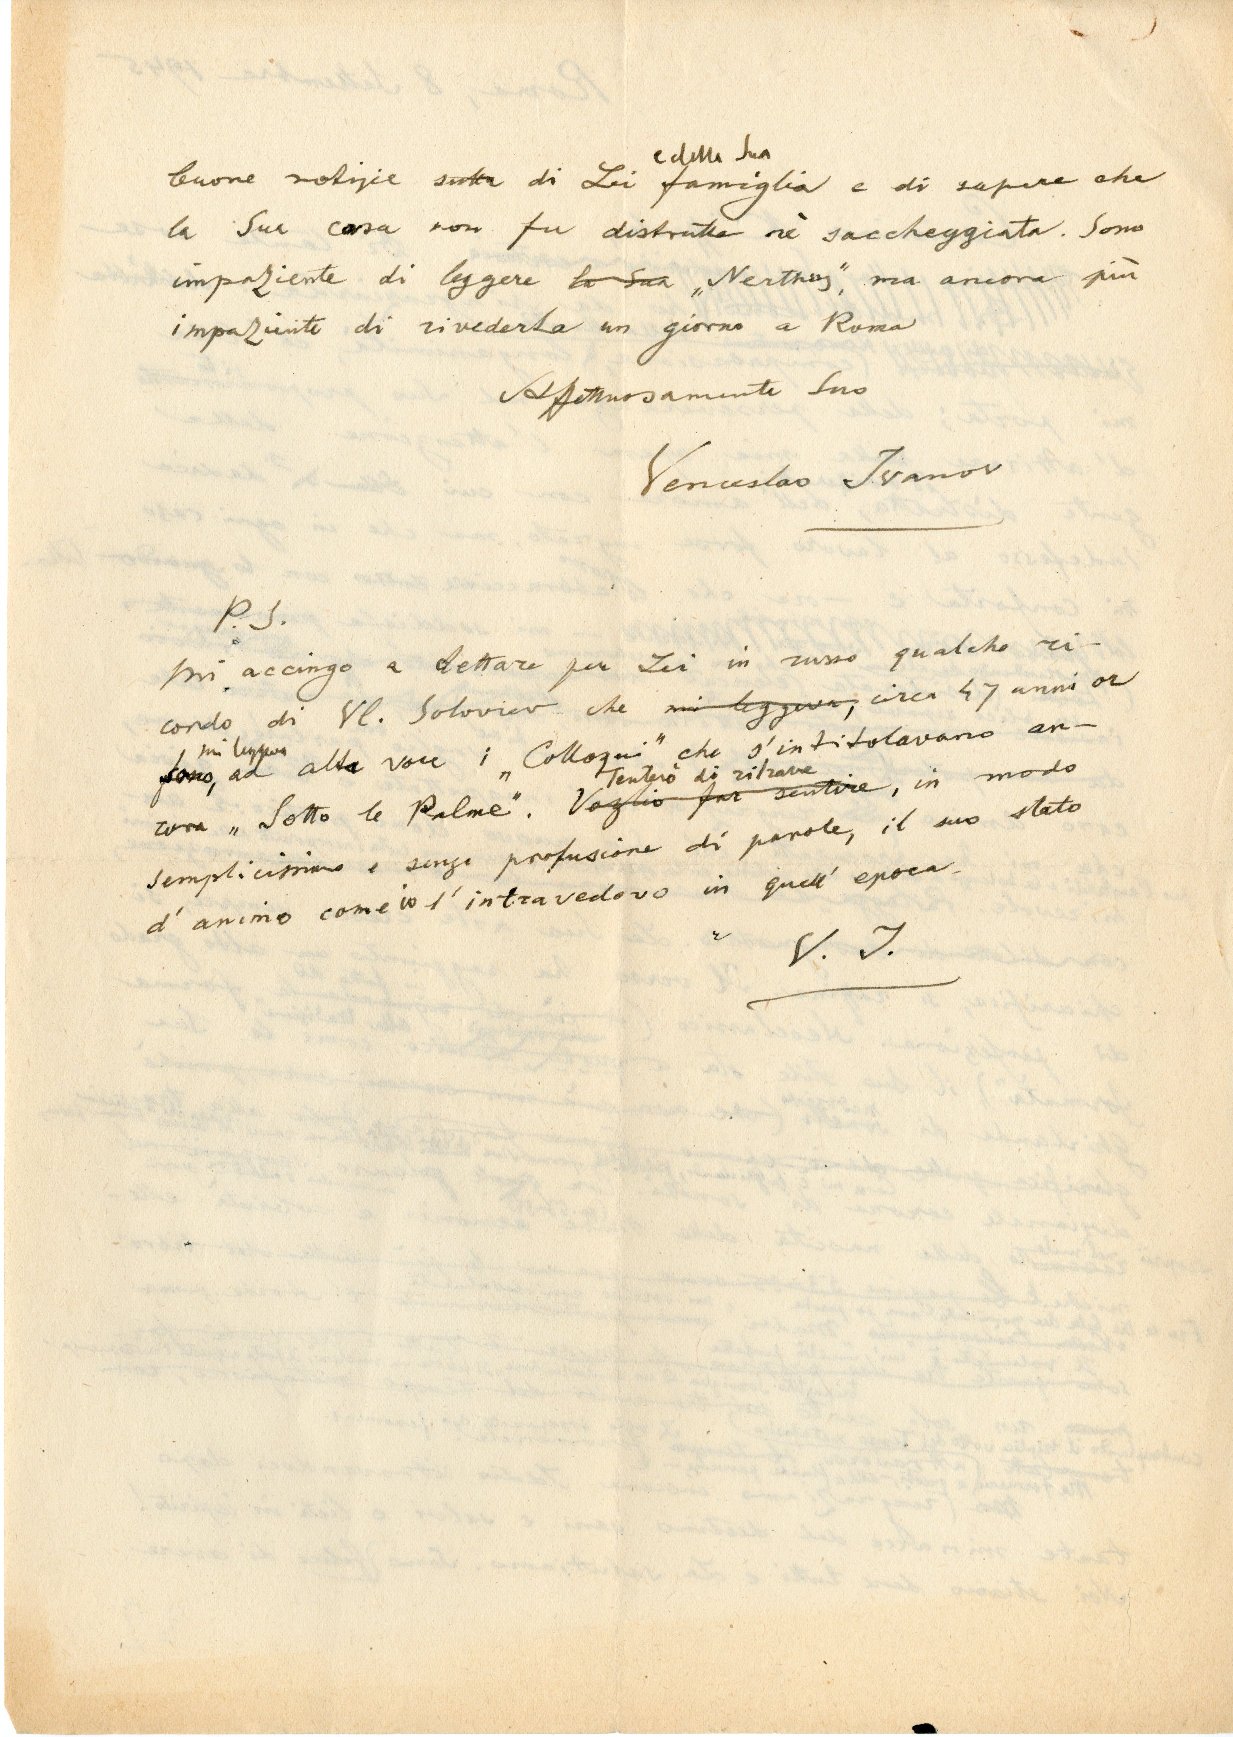 e della Sua
buone notizie sulla di Lei famiglia e di sapere che
la Sua casa non fu distrutta nè saccheggiata. Sono
impaziente di leggere la Sua „Nerthus“, ma ancora più
impaziente di rivederLa un giorno a Roma
Affettuosamente Suo
Venceslao Ivanov
P. S.
Mi accingo a dettare per Lei in russo qualche ri-
cordo di Vl. Soloviev che mi leggeva, circa 47 anni or
mi leggeva
sono, ad alta voce i „Colloqui“ che s'intitolavano an-
Tenterò di ritrarre
cora „Sotto le Palme“. Voglio far sentire, in modo
semplicissimo e senza profusione di parole, il suo stato
d'animo come io l'intravedevo in quell'epoca.
V. I.